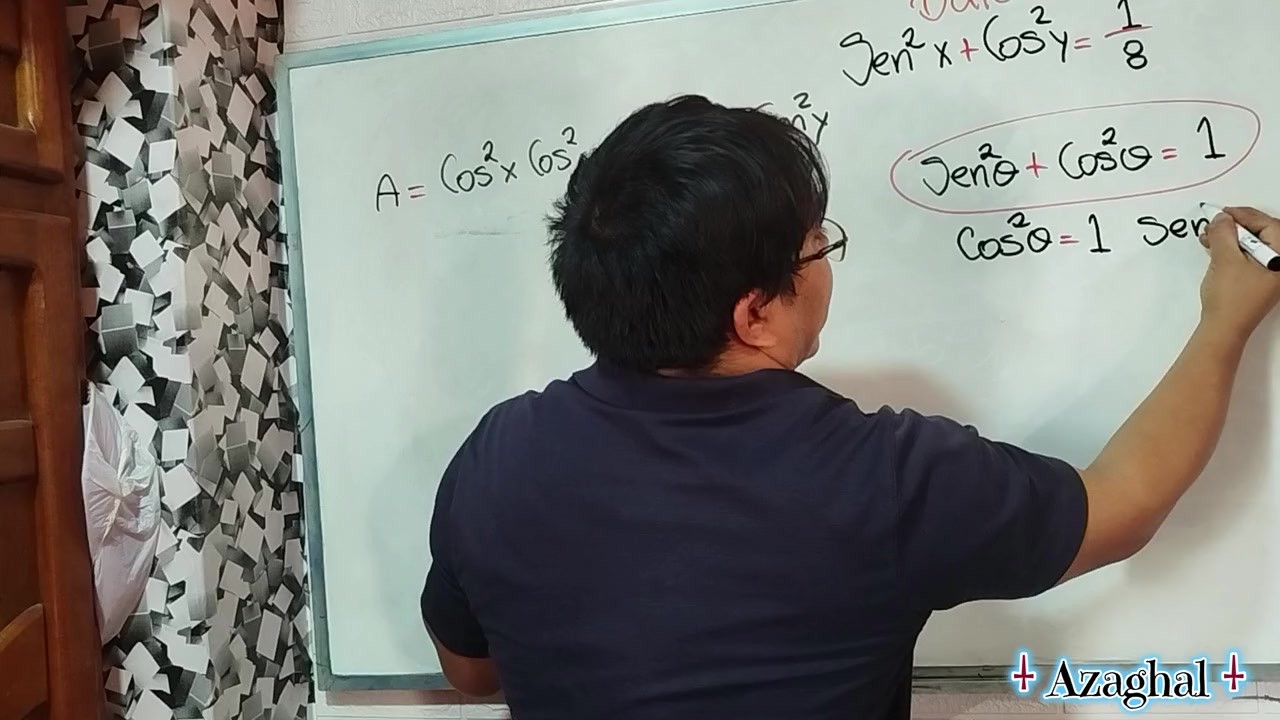 Sen²x + Cos²y = 1/8
A = Cos²x Cos²
²y
Sen²θ + Cos²θ = 1
Cos²θ = 1 Sen
Azaghal